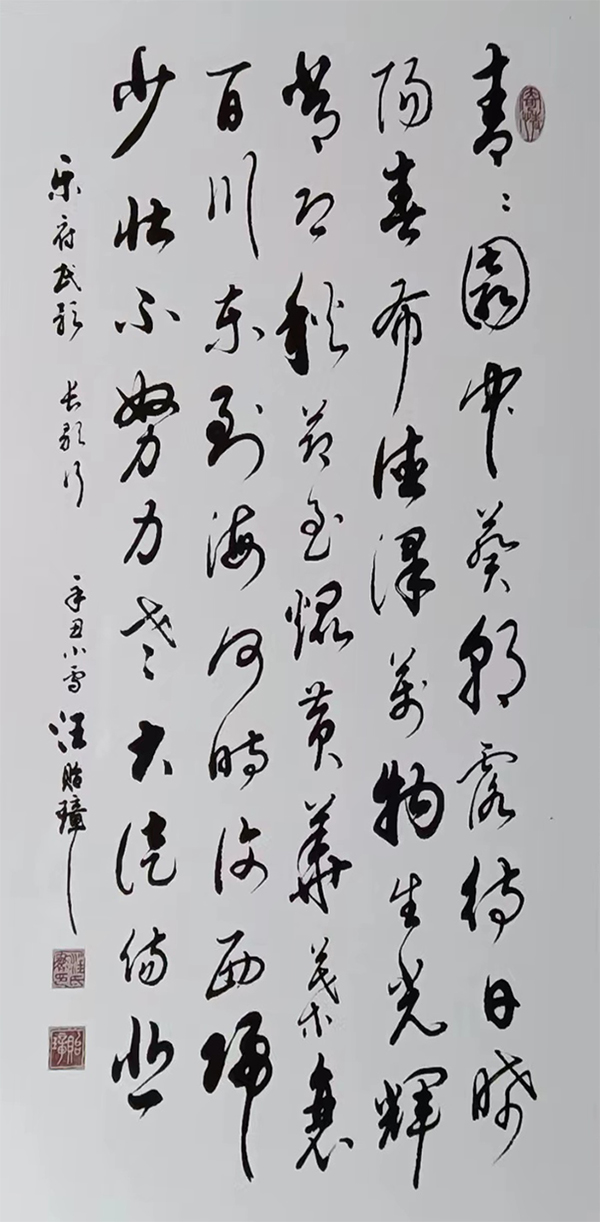 青〻園中葵朝露待日晞
陽春布德澤萬物生光輝
常恐秋節至焜黃華葉衰
百川東到海何時復西歸
少壯不努力老大徒傷悲
乐府民歌 长歌行 辛丑小雪 汪贻璋